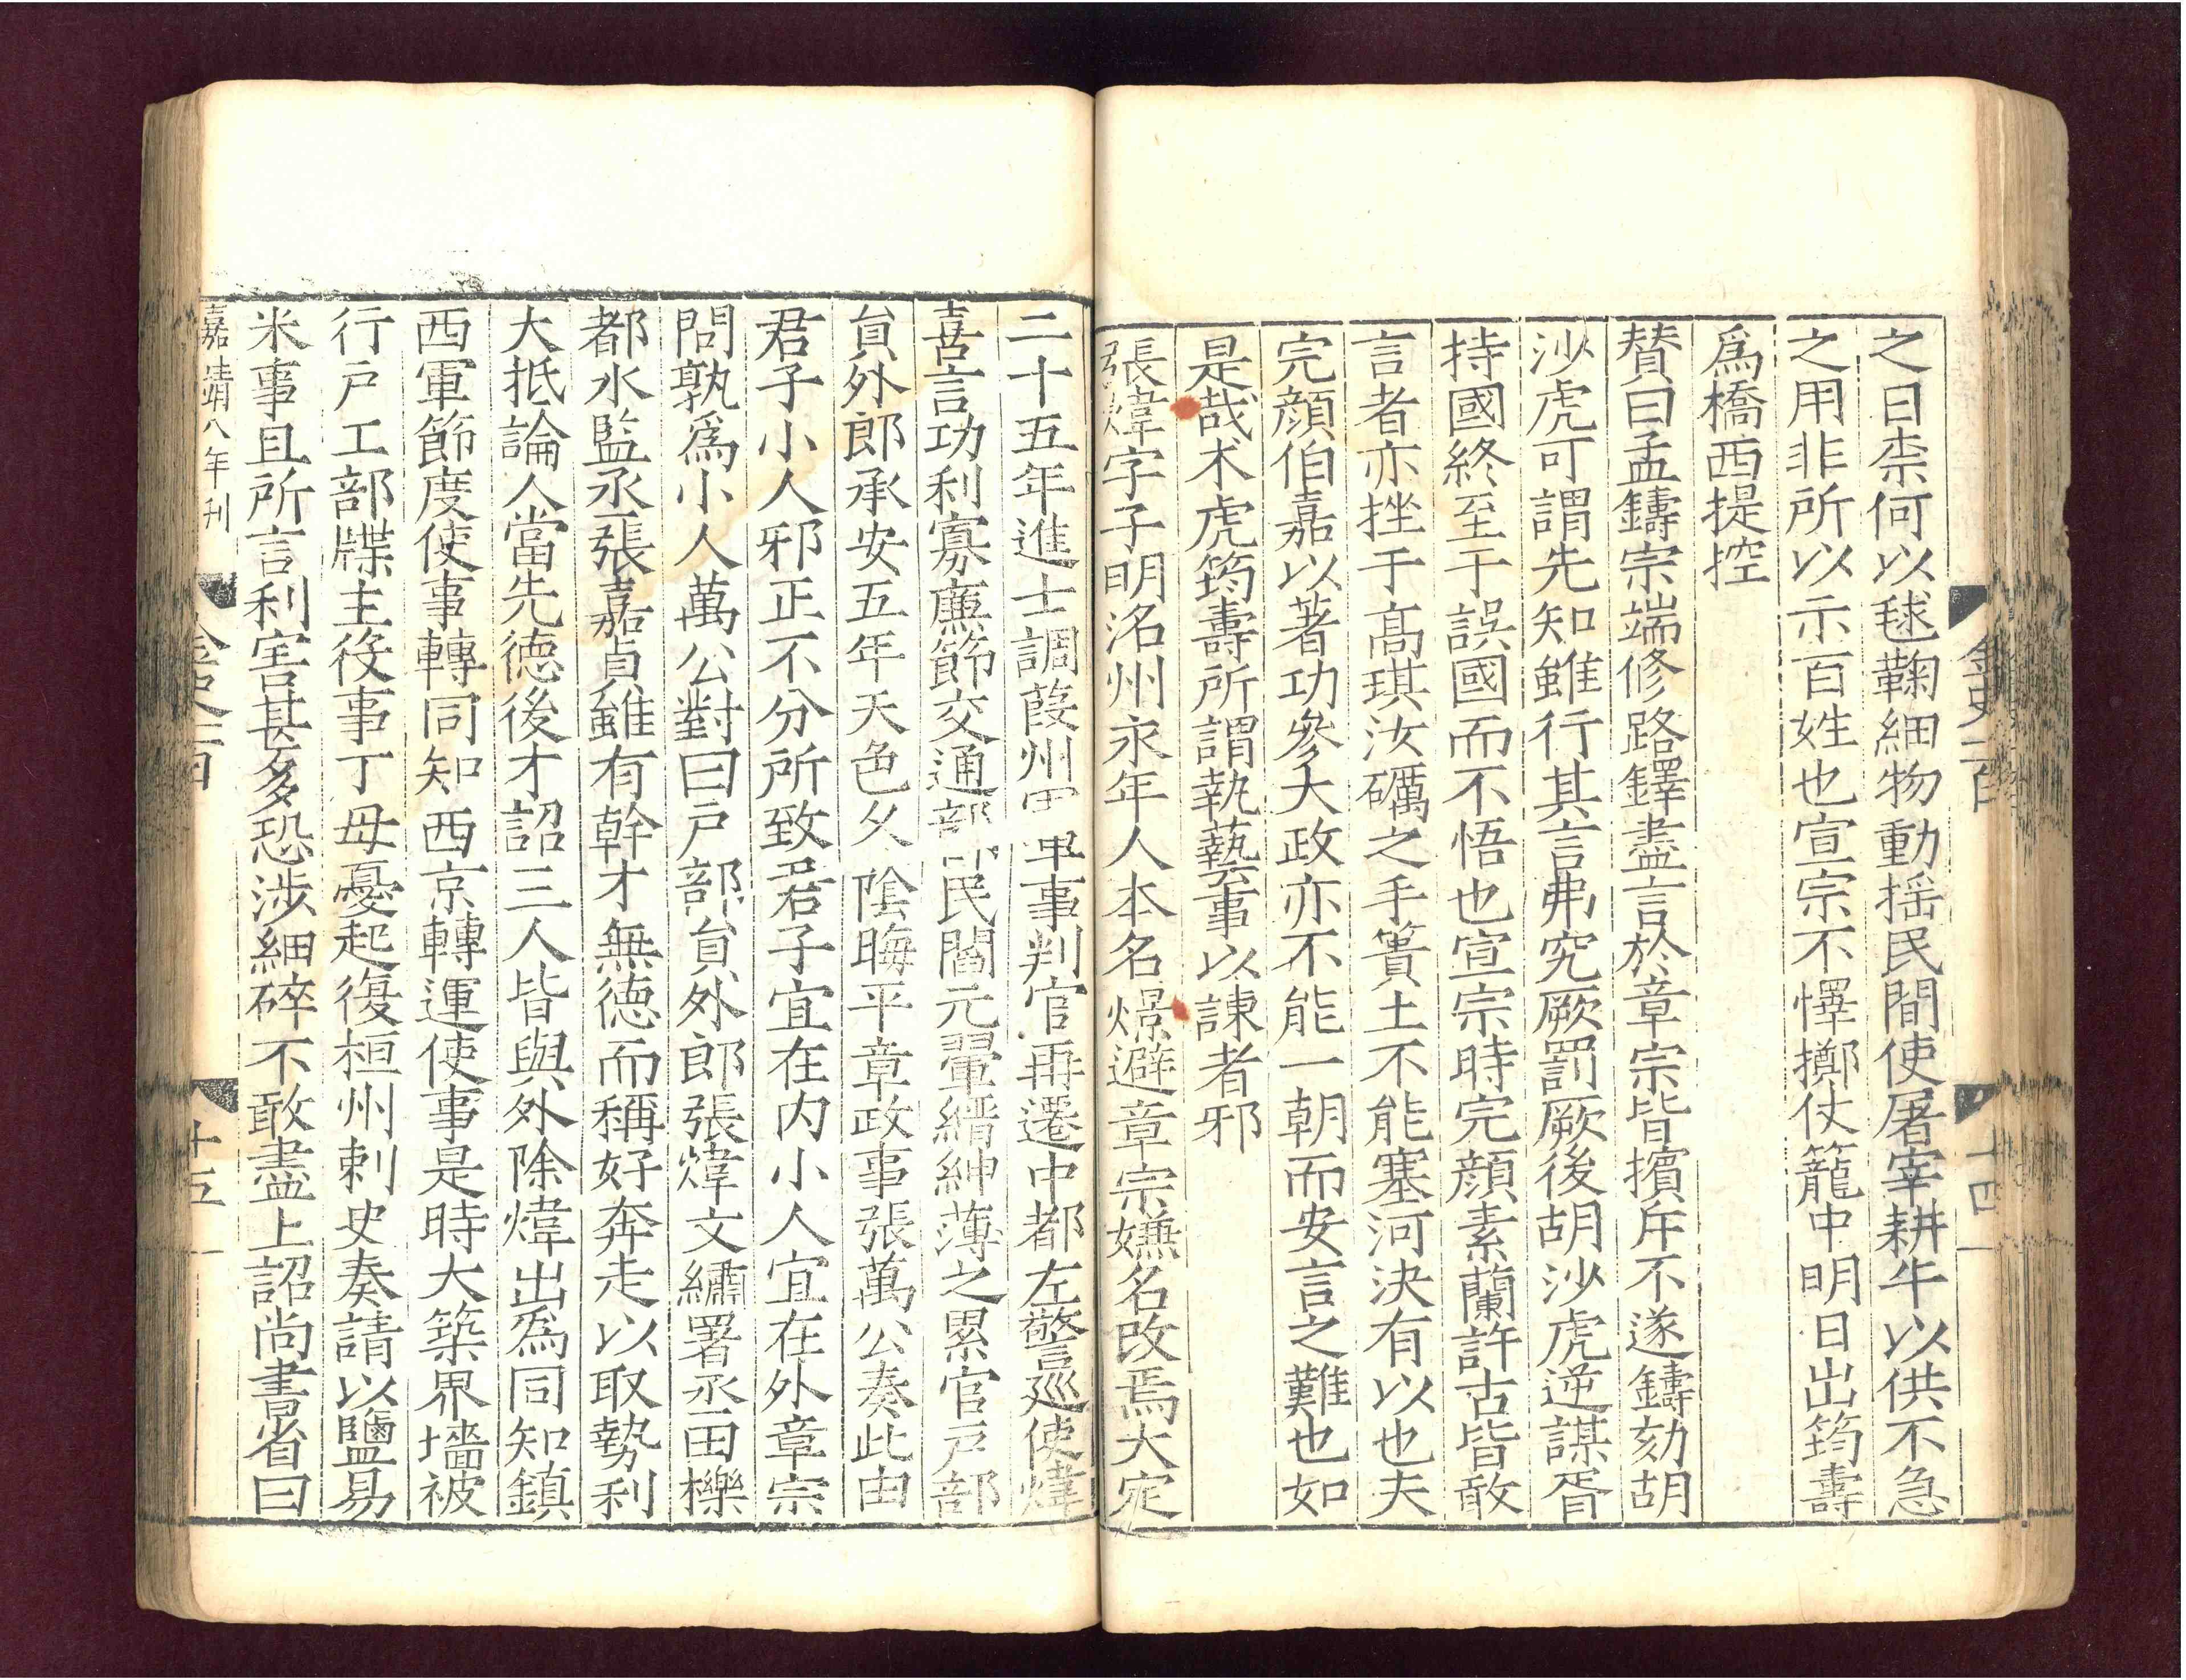 之曰柰何以毬鞠細物動摇民間使屠宰耕牛以供不急
之用非所以示百姓也宣宗不懌擲仗籠中明日出筠壽
爲橋西提控
賛曰孟鑄宗端修路鐸盡言於章宗皆擯斥不遂鑄劾胡
沙虎可謂先知雖行其言弗究厥罰厥後胡沙虎逆謀胥
持國終至于誤國而不悟也宣宗時完顔素蘭許古皆敢
言者亦挫于高琪汝礪之手簣土不能塞河決有以也夫
完顔伯嘉以著功參大政亦不能一朝而安言之難也如
是哉术虎筠壽所謂執藝事以諌者邪
張煒字子明洺州永年人本名燝避章宗嫌名改焉大定
金史一百
十四
二十五年進士調葭州軍事判官再遷中都左警巡使煒
喜言功利寡廉節交通部民閻元翬縉紳薄之累官戸部
貟外郎承安五年天色久陰晦平章政事張萬公奏此由
君子小人邪正不分所致君子宜在内小人宜在外章宗
問孰爲小人萬公對曰戸部貟外郎張煒文繡署丞田櫟
都水監丞張嘉貞雖有幹才無德而稱好奔走以取勢利
大抵論人當先德後才詔三人皆與外除煒出爲同知鎮
西軍節度使事轉同知西京轉運使事是時大築界墻被
行戸工部牒主役事丁母憂起復桓州刺史奏請以鹽易
米事且所言利害甚多恐涉細碎不敢盡上詔尚書省曰
嘉靖八年刊
金史一百
十五